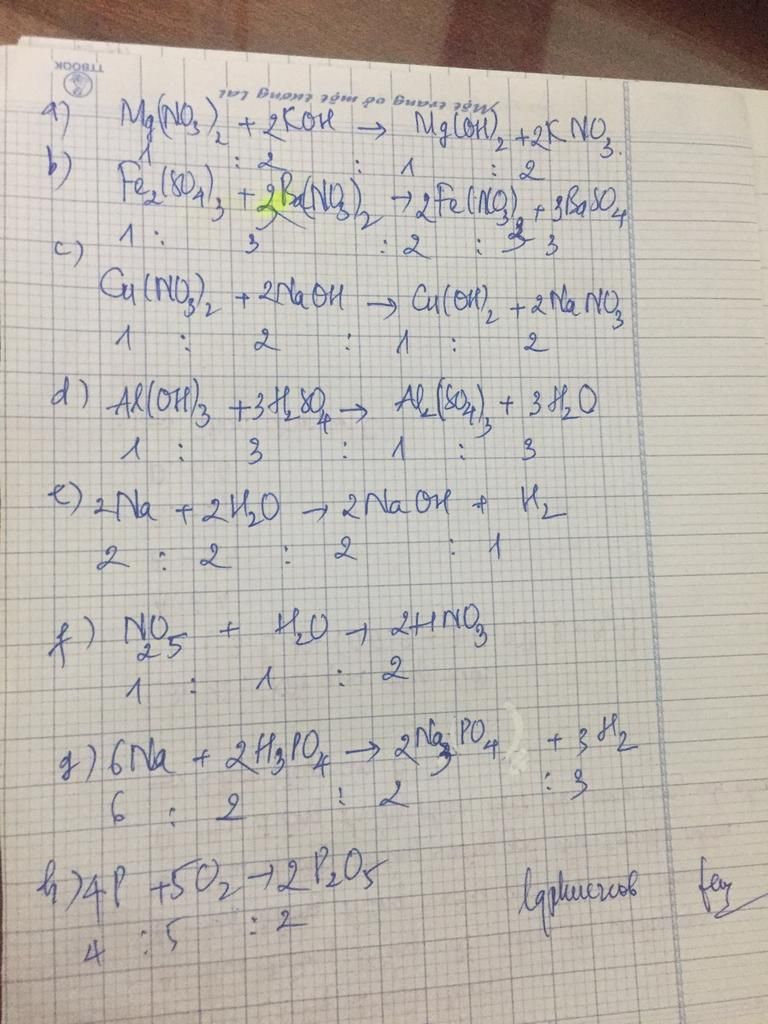 TTBOOK
Một trang vở một tương lai
a) Mg(NO3)2 + 2KOH → Mg(OH)2 + 2KNO3.
1 : 2 : 1 : 2
b) Fe2(SO4)3 + 3Ba(NO3)2 → 2Fe(NO3)3 + 3BaSO4
1 : 3 : 2 : 3
c)
Cu(NO3)2 + 2NaOH → Cu(OH)2 + 2NaNO3
1 : 2 : 1 : 2
d) Al(OH)3 + 3H2SO4 → Al2(SO4)3 + 3H2O
1 : 3 : 1 : 3
e) 2Na + 2H2O → 2NaOH + H2
2 : 2 : 2 : 1
f) N2O5 + H2O → 2HNO3
1 : 1 : 2
g) 6Na + 2H3PO4 → 2Na3PO4 + 3H2
6 : 2 : 2 : 3
h) 4P + 5O2 → 2P2O5
4 : 5 : 2